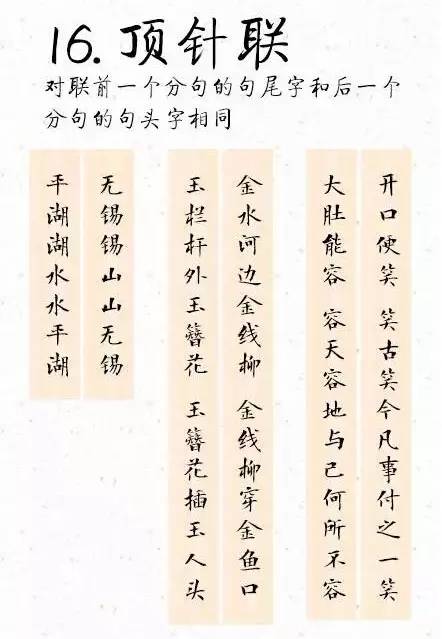 16.顶针联
对联前一个分句的句尾字和后一个
分句的句头字相同
开口便笑 笑古笑今凡事付之一笑
大肚能容 容天容地与己何所不容
金水河边金线柳 金线柳穿金鱼口
玉栏杆外玉簪花 玉簪花插玉人头
无锡锡山山无锡
平湖湖水水平湖